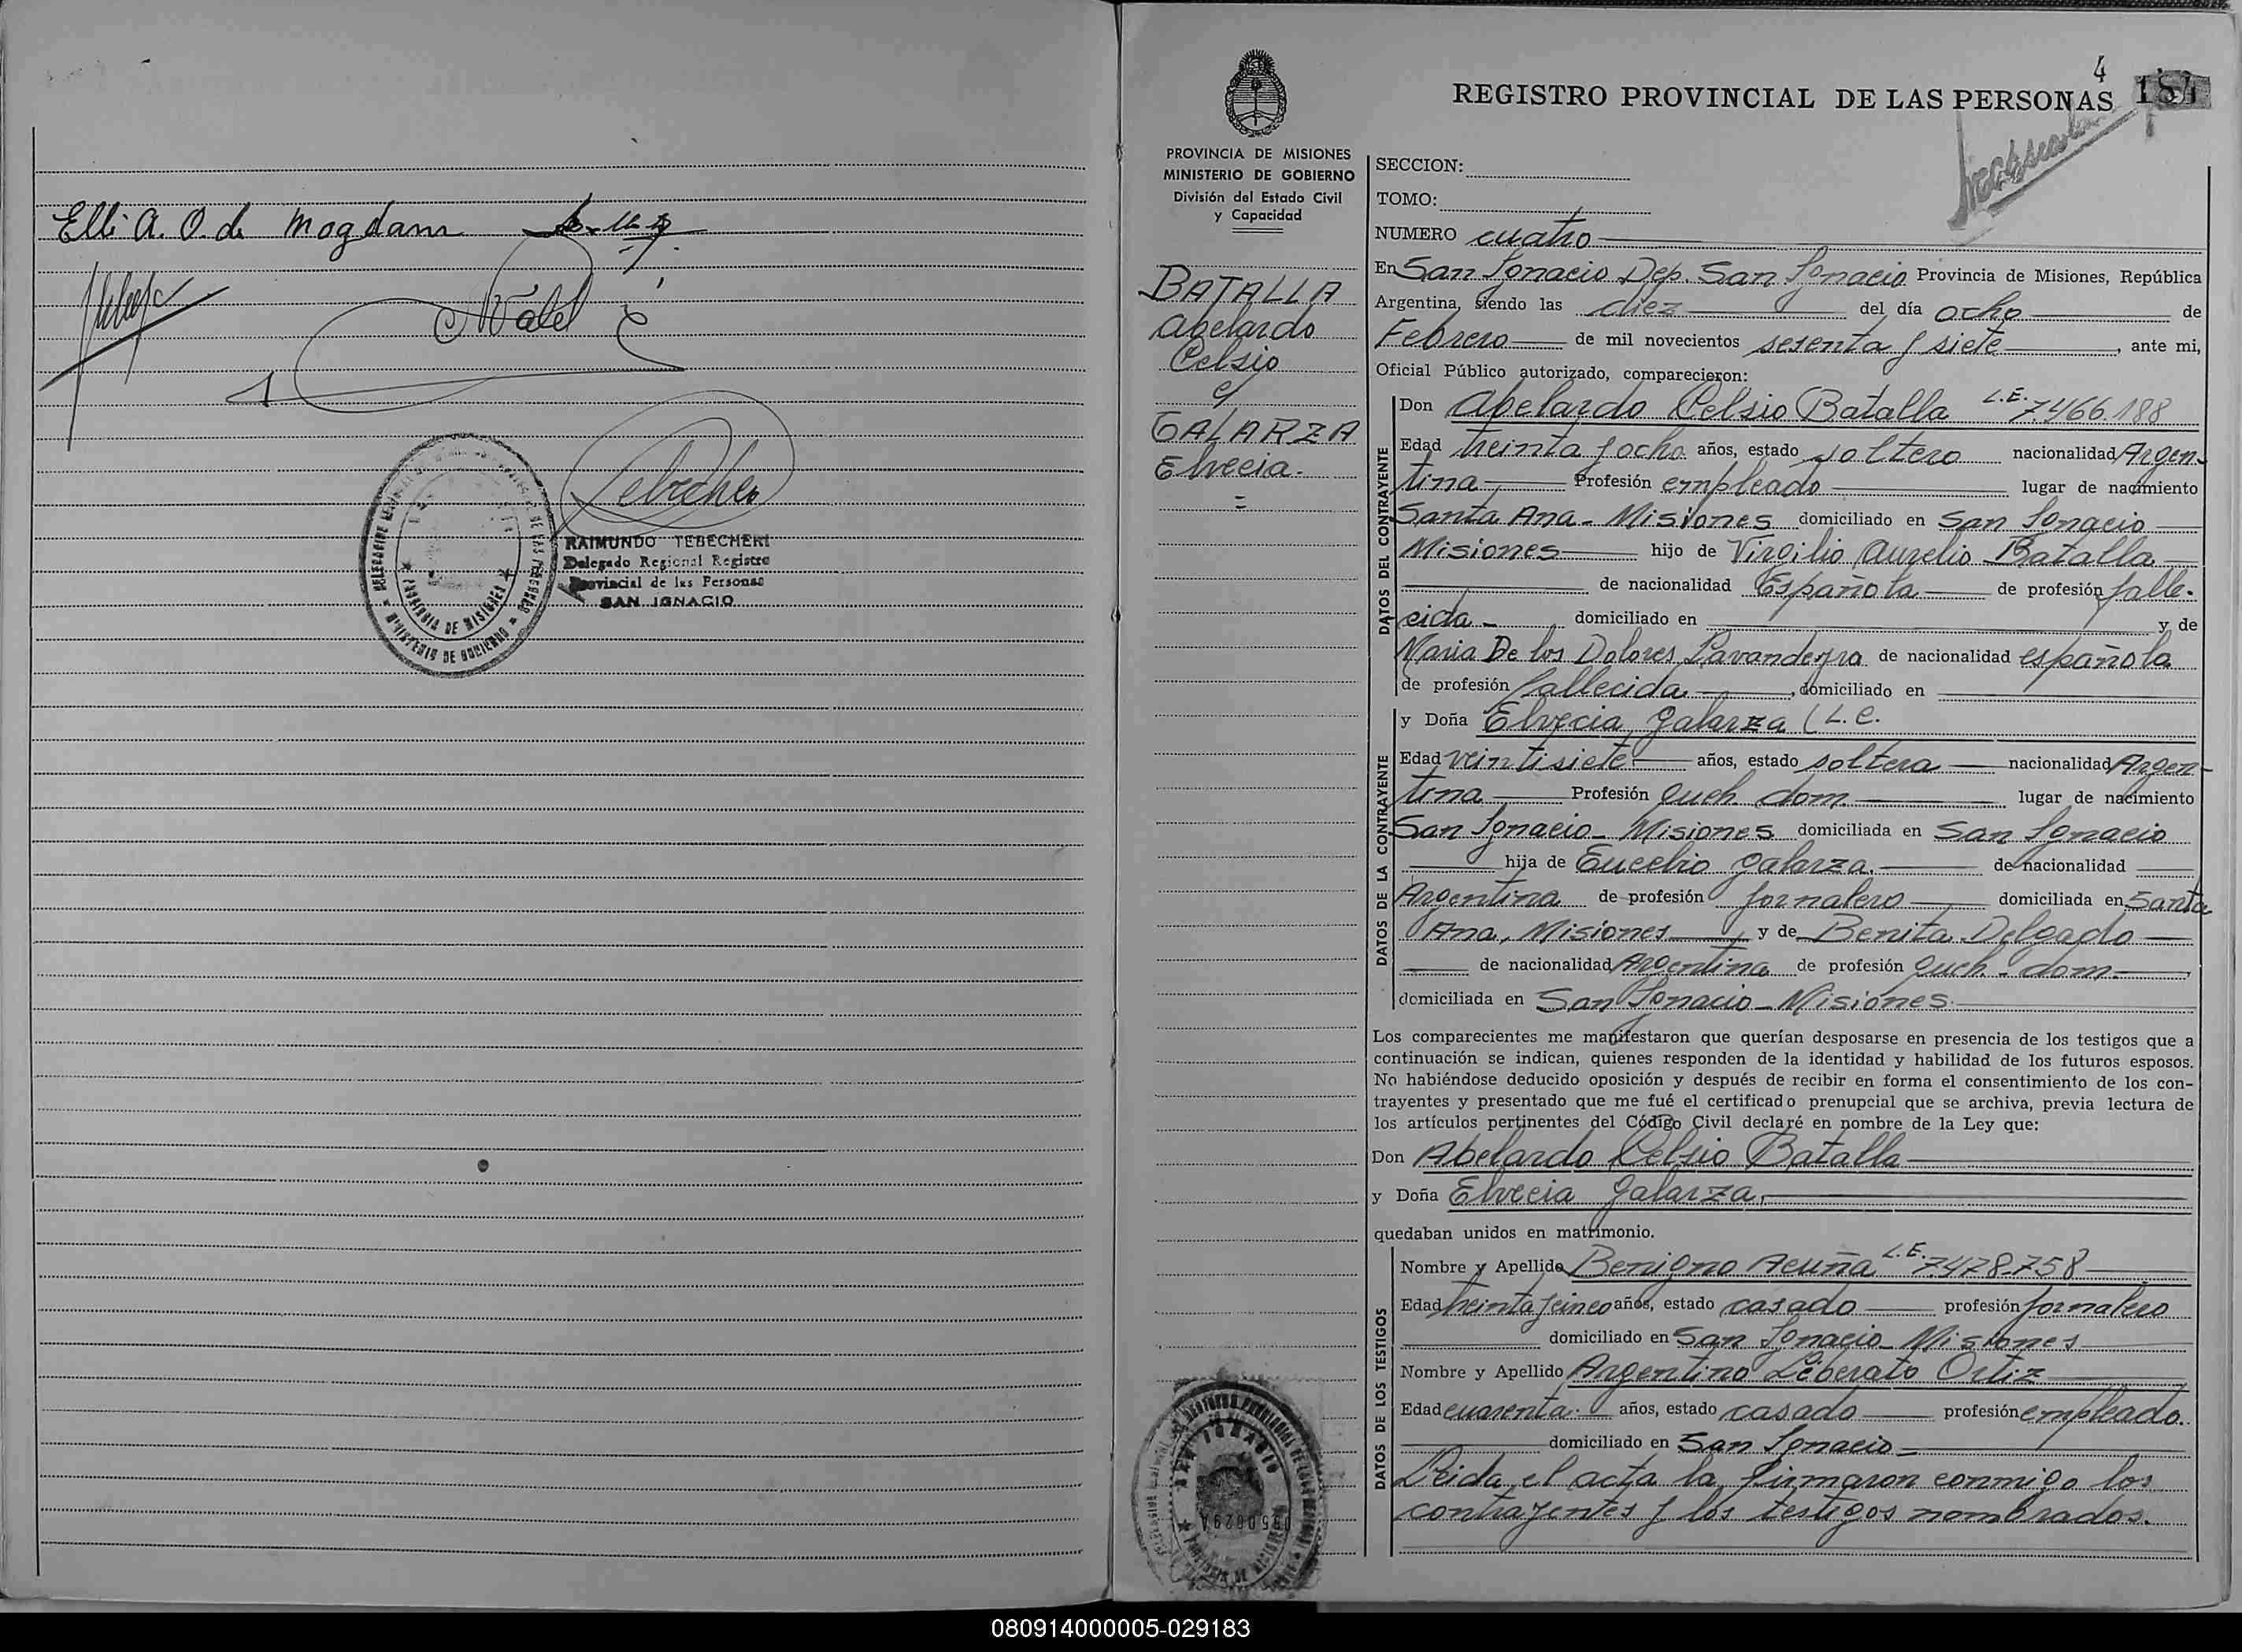 Elli A. O. de Mogdans
RAIMUNDO TEBECHERI
Delegado Regional Registro
Provincial de las Personas
SAN IGNACIO
PROVINCIA DE MISIONES
MINISTERIO DE GOBIERNO
4
REGISTRO PROVINCIAL DE LAS PERSONAS 184
PROVINCIA DE MISIONES
MINISTERIO DE GOBIERNO
División del Estado Civil
y Capacidad
BATALLA
Abelardo
Celsio
y
GALARZA
Elvecia.
=
SECCION:
TOMO:
NUMERO cuatro
En San Ignacio Dep. San Ignacio Provincia de Misiones, República
Argentina, siendo las diez del día ocho de
Febrero de mil novecientos sesenta y siete, ante mi,
Oficial Público autorizado, comparecieron:
DATOS DEL CONTRAYENTE
Don Abelardo Celsio Batalla L.E. 7.466.188
Edad treinta y ocho años, estado soltero nacionalidad Argen-
tina Profesión empleado lugar de nacimiento
Santa Ana - Misiones domiciliado en San Ignacio
Misiones hijo de Virgilio Aurelio Batalla
de nacionalidad Española de profesión falle-
cida - domiciliado en y de
Maria De los Dolores Lavandeyra de nacionalidad española
de profesión fallecida, domiciliado en
DATOS DE LA CONTRAYENTE
y Doña Elvecia Galarza (L.C.
Edad veintisiete años, estado soltera nacionalidad Argen-
tina Profesión Queh. dom. lugar de nacimiento
San Ignacio - Misiones domiciliada en San Ignacio
hija de Eucebio Galarza. de nacionalidad
Argentina de profesión jornalero domiciliada en Santa
Ana, Misiones y de Benita Delgado
de nacionalidad Argentina de profesión Queh. dom.
domiciliada en San Ignacio - Misiones.
Los comparecientes me manifestaron que querían desposarse en presencia de los testigos que a
continuación se indican, quienes responden de la identidad y habilidad de los futuros esposos.
No habiéndose deducido oposición y después de recibir en forma el consentimiento de los con-
trayentes y presentado que me fué el certificado prenupcial que se archiva, previa lectura de
los artículos pertinentes del Código Civil declaré en nombre de la Ley que:
Don Abelardo Celsio Batalla
y Doña Elvecia Galarza,
quedaban unidos en matrimonio.
DATOS DE LOS TESTIGOS
Nombre y Apellido Benigno Acuña L.E. 7.478.758
Edad treinta y cinco años, estado casado profesión jornalero
domiciliado en San Ignacio - Misiones
Nombre y Apellido Argentino Liberato Ortiz
Edad cuarenta. años, estado casado profesión empleado.
domiciliado en San Ignacio -
Leida el acta la firmaron conmigo los
contrayentes y los testigos nombrados.
080914000005-029183